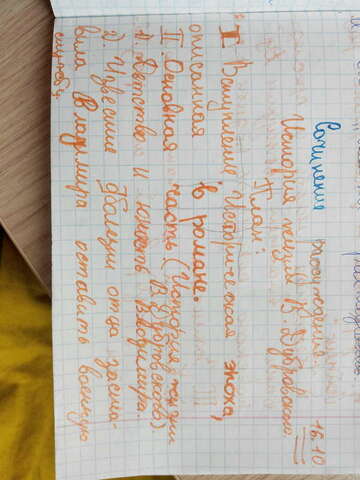 16.10
Сочинения рассуждение
История жизни В. Дубровского.
План:
I Вступление Историческая эпоха,
описанная в романе.
II. Основная часть (История жизни
В. Дубровского).
1. Детство и юность Владимира.
2. Известие болезни отца заста-
вила Владимира оставить военную
службу.